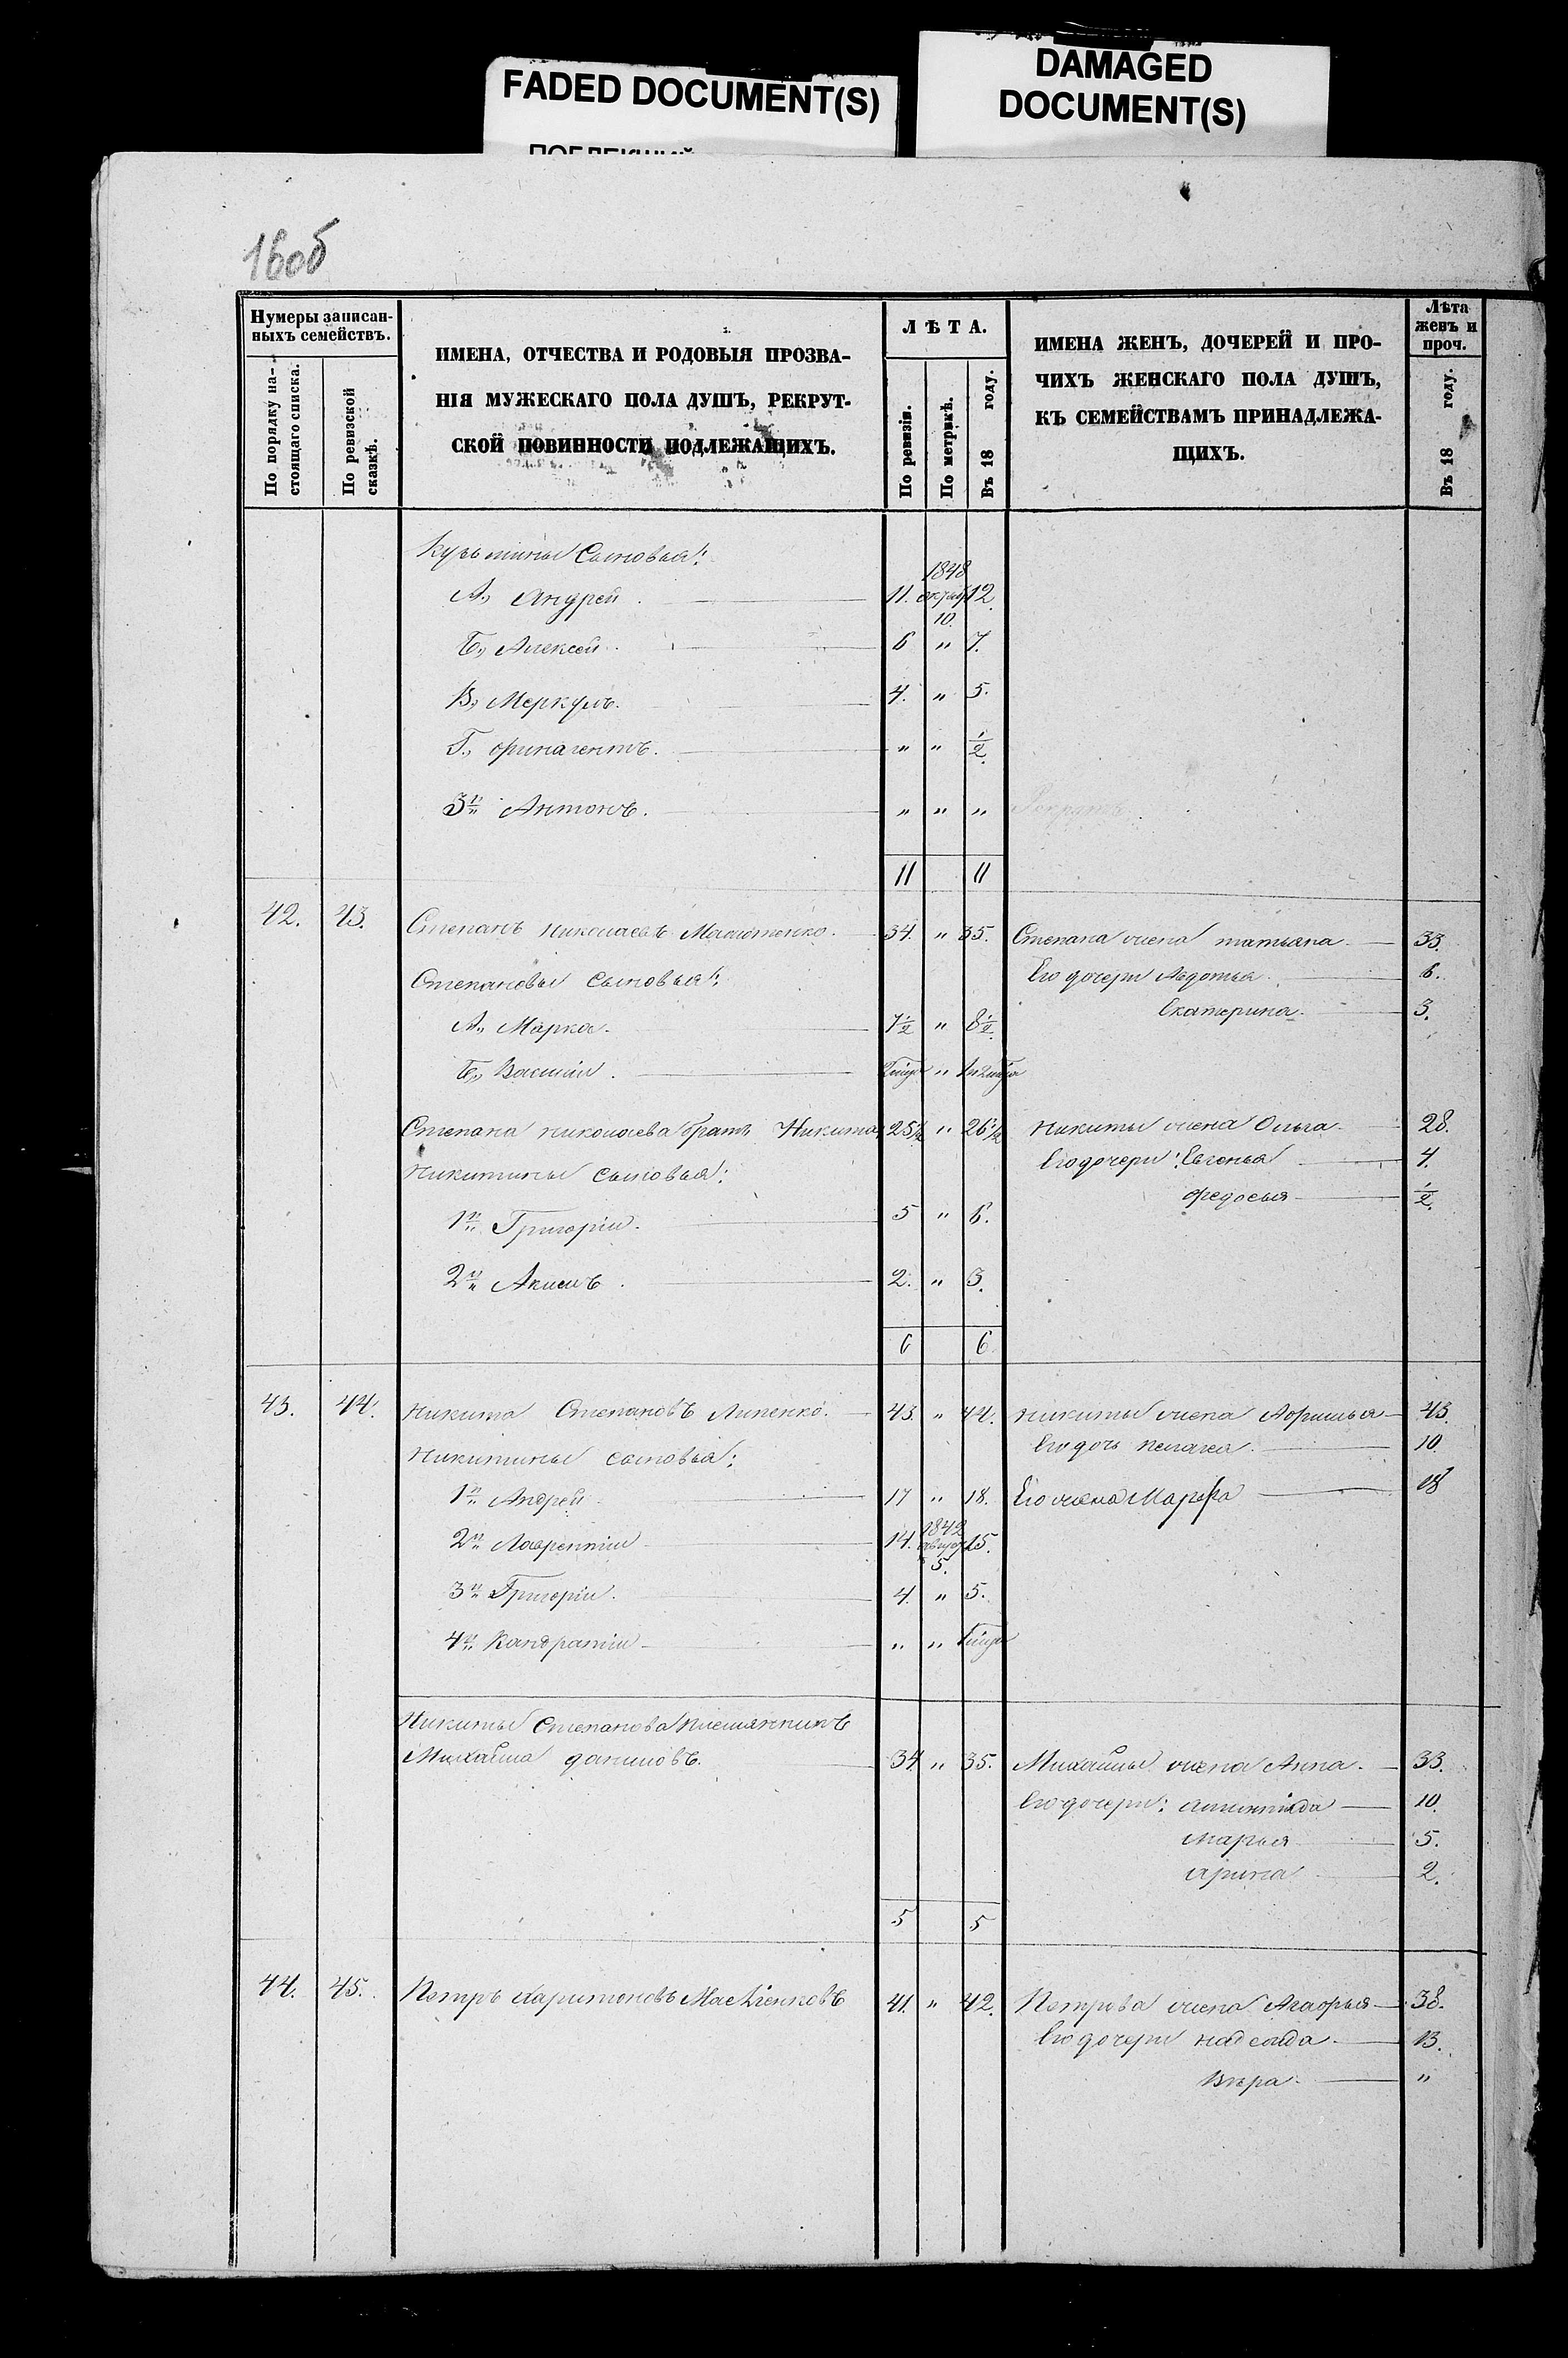 FADED DOCUMENT(S)
DAMAGED
DOCUMENT(S)
16об
Нумеры записан-
ныхъ семействъ.
По порядку на-
стоящаго списка.
По ревизской
сказкѣ.
ИМЕНА, ОТЧЕСТВА И РОДОВЫЯ ПРОЗВА-
НІЯ МУЖЕСКАГО ПОЛА ДУШЪ, РЕКРУТ-
СКОЙ ПОВИННОСТИ ПОДЛЕЖАЩИХЪ.
ЛѢТА.
По ревизіи.
По метрикѣ.
Въ 18 году.
ИМЕНА ЖЕНЪ, ДОЧЕРЕЙ И ПРО-
ЧИХЪ ЖЕНСКАГО ПОЛА ДУШЪ,
КЪ СЕМЕЙСТВАМЪ ПРИНАДЛЕЖА-
ЩИХЪ.
Лѣта
женъ и
проч.
Въ 18 году.
Кузьмины Сыновья:
1848
А., Андрей. 11. октяб 12.
10.
Б., Алексей. 6 " 7.
В., Меркулъ. 4. " 5.
Г., " " 1/2.
3й Антонъ. " " "
11 11
42. 43. Степанъ Николаевъ 34. " 35. Степана жена татьяна. 33.
Степановы Сыновья: Его дочери Авдотья. 6.
Екатерина. 3.
А., Марко. 7 1/2 " 8 1/2.
Б., Василій.
Степана николаева братъ Никита 25 1/2 " 26 1/2 Никиты жена Ольга. 28.
Никитины сыновья: Его дочери: Евгенья 4.
федосья 1/2.
1й Григорій. 5 " 6.
2й Акимъ. 2. " 3.
6 6
43. 44. Никита Степановъ Липенко. 43. " 44. Никиты жена 43.
Никитины сыновья: Его дочь пелагея. 10.
1й Андрей. 17 " 18. Его жена Марфа 18
1842
2й Лаврентій 14. август 15.
5.
3й Григорій. 4. " 5.
4й Кандратій " "
Никиты Степанова племянникъ
Михайла даниловъ. 34. " 35. Михайлы жена Анна. 33.
Его дочери: 10.
марья 5.
арина 2.
5 5
44. 45. Петръ харитоновъ 41. " 42. Петрова жена Агафья 38.
Его дочери надежда. 13.
Вѣра. "